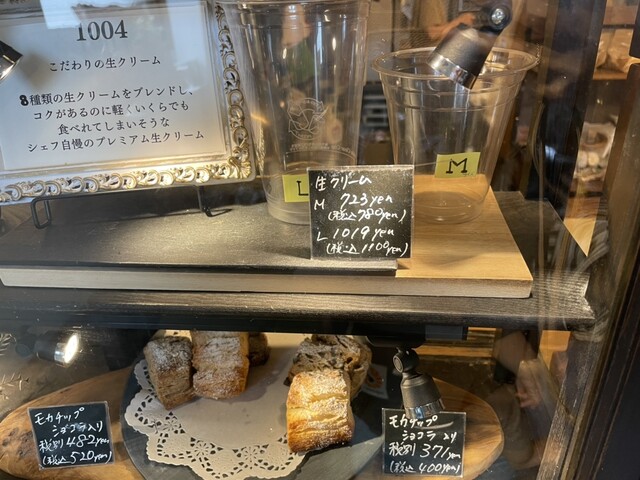 1004
こだわりの生クリーム
8種類の生クリームをブレンドし、
コクがあるのに軽くいくらでも
食べれてしまいそうな
シェフ自慢のプレミアム生クリーム
L
M
生クリーム
M 723yen
(税込780yen)
L 1019yen
(税込1100yen)
モカチップ
ショコラ入り
税別482yen
(税込520yen)
モカチップ
ショコラ入り
税別371yen
(税込400yen)